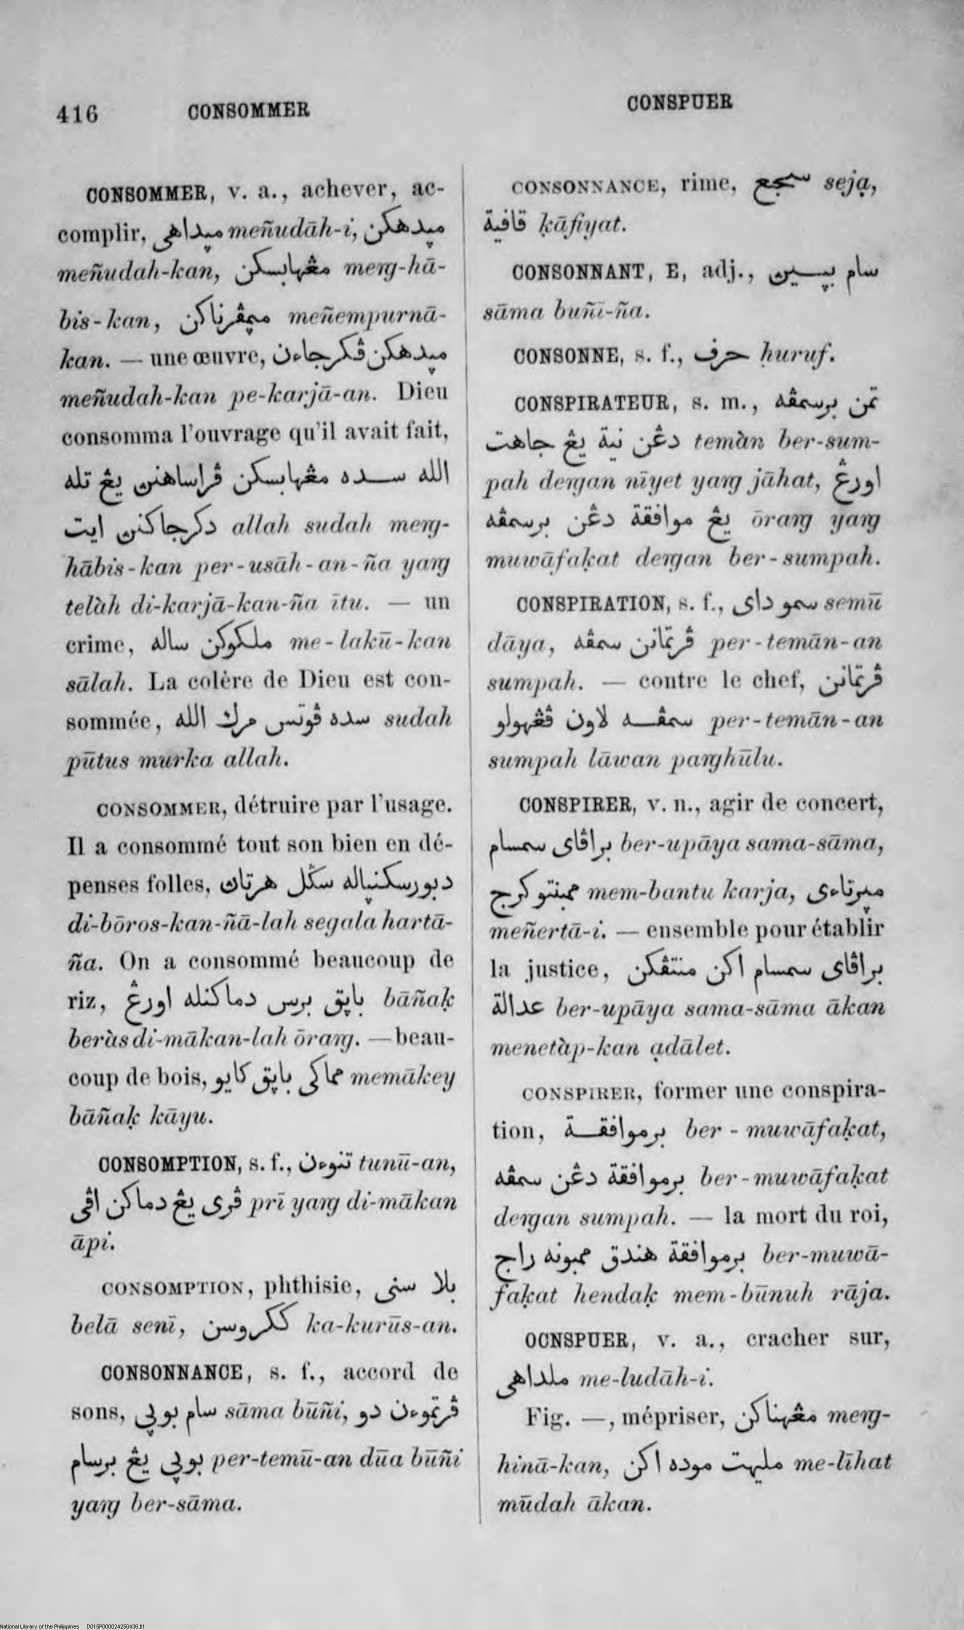 416 CONSOMMER CONSPUER
CONSOMMER, v. a., achever, ac-
complir, مپداهى meñudāh-i, مپدهكن
meñudah-kan, مڠهابسكن merg-hā-
bis-kan, مپمڤرناكن meñempurnā-
kan. — une œuvre, مپدهكن ڤكرجاءن
meñudah-kan pe-karjā-an. Dieu
consomma l'ouvrage qu'il avait fait,
الله سده مڠهابسكن ڤراساهنن يڠ تله
دكرجاكنن ايت allah sudah merg-
hābis-kan per-usāh-an-ña yarg
telàh di-karjā-kan-ña ītu. — un
crime, ملكوكن ساله me-lakū-kan
sālah. La colère de Dieu est con-
sommée, سده ڤوتس مرك الله sudah
pūtus murka allah.
CONSOMMER, détruire par l'usage.
Il a consommé tout son bien en dé-
penses folles, دبورسكنياله سڬل هرتاڽ
di-bōros-kan-ñā-lah segala hartā-
ña. On a consommé beaucoup de
riz, باپق برس دماكنله اورڠ bāñaḳ
beràs di-mākan-lah ōrarg. — beau-
coup de bois, مماكى باپق كايو memākey
bāñaḳ kāyu.
CONSOMPTION, s. f., تنوءن tunū-an,
ڤرى يڠ دماكن اڤى prī yarg di-mākan
āpi.
CONSOMPTION, phthisie, بلا سنى
belā senī, ككروسن ka-kurūs-an.
CONSONNANCE, s. f., accord de
sons, سام بوپى sāma būñi, ڤرتموءن دو
بوپى يڠ برسام per-temū-an dūa būñi
yarg ber-sāma.
CONSONNANCE, rime, سجع sejạ,
قافية ḳāfiyat.
CONSONNANT, E, adj., سام بپيين
sāma buñi-ña.
CONSONNE, s. f., حرف ḥuruf.
CONSPIRATEUR, s. m., تمن برسمڤه
دڠن نية يڠ جاهت temàn ber-sum-
pah dergan nīyet yarg jāhat, اورڠ
يڠ موافقة دڠن برسمڤه ōrarg yarg
muwāfaḳat dergan ber-sumpah.
CONSPIRATION, s. f., سمو داى semū
dāya, ڤرتمانن سمڤه per-temān-an
sumpah. — contre le chef, ڤرتمانن
سمڤه لاون ڤڠهولو per-temān-an
sumpah lāwan parghūlu.
CONSPIRER, v. n., agir de concert,
براڤاى سمسام ber-upāya sama-sāma,
ممبنتو كرج mem-bantu karja, مپرتاءى
meñertā-i. — ensemble pour établir
la justice, براڤاى سمسام اكن منتڤكن
عدالة ber-upāya sama-sāma ākan
menetàp-kan ạdālet.
CONSPIRER, former une conspira-
tion, برموافقة ber-muwāfaḳat,
برموافقة دڠن سمڤه ber-muwāfaḳat
dergan sumpah. — la mort du roi,
برموافقة هندق ممبونه راج ber-muwā-
faḳat hendaḳ mem-būnuh rāja.
OCNSPUER, v. a., cracher sur,
ملداهى me-ludāh-i.
Fig. —, mépriser, مڠهناكن merg-
hinā-kan, مليهت موده اكن me-līhat
mūdah ākan.
National Library of the Philippines